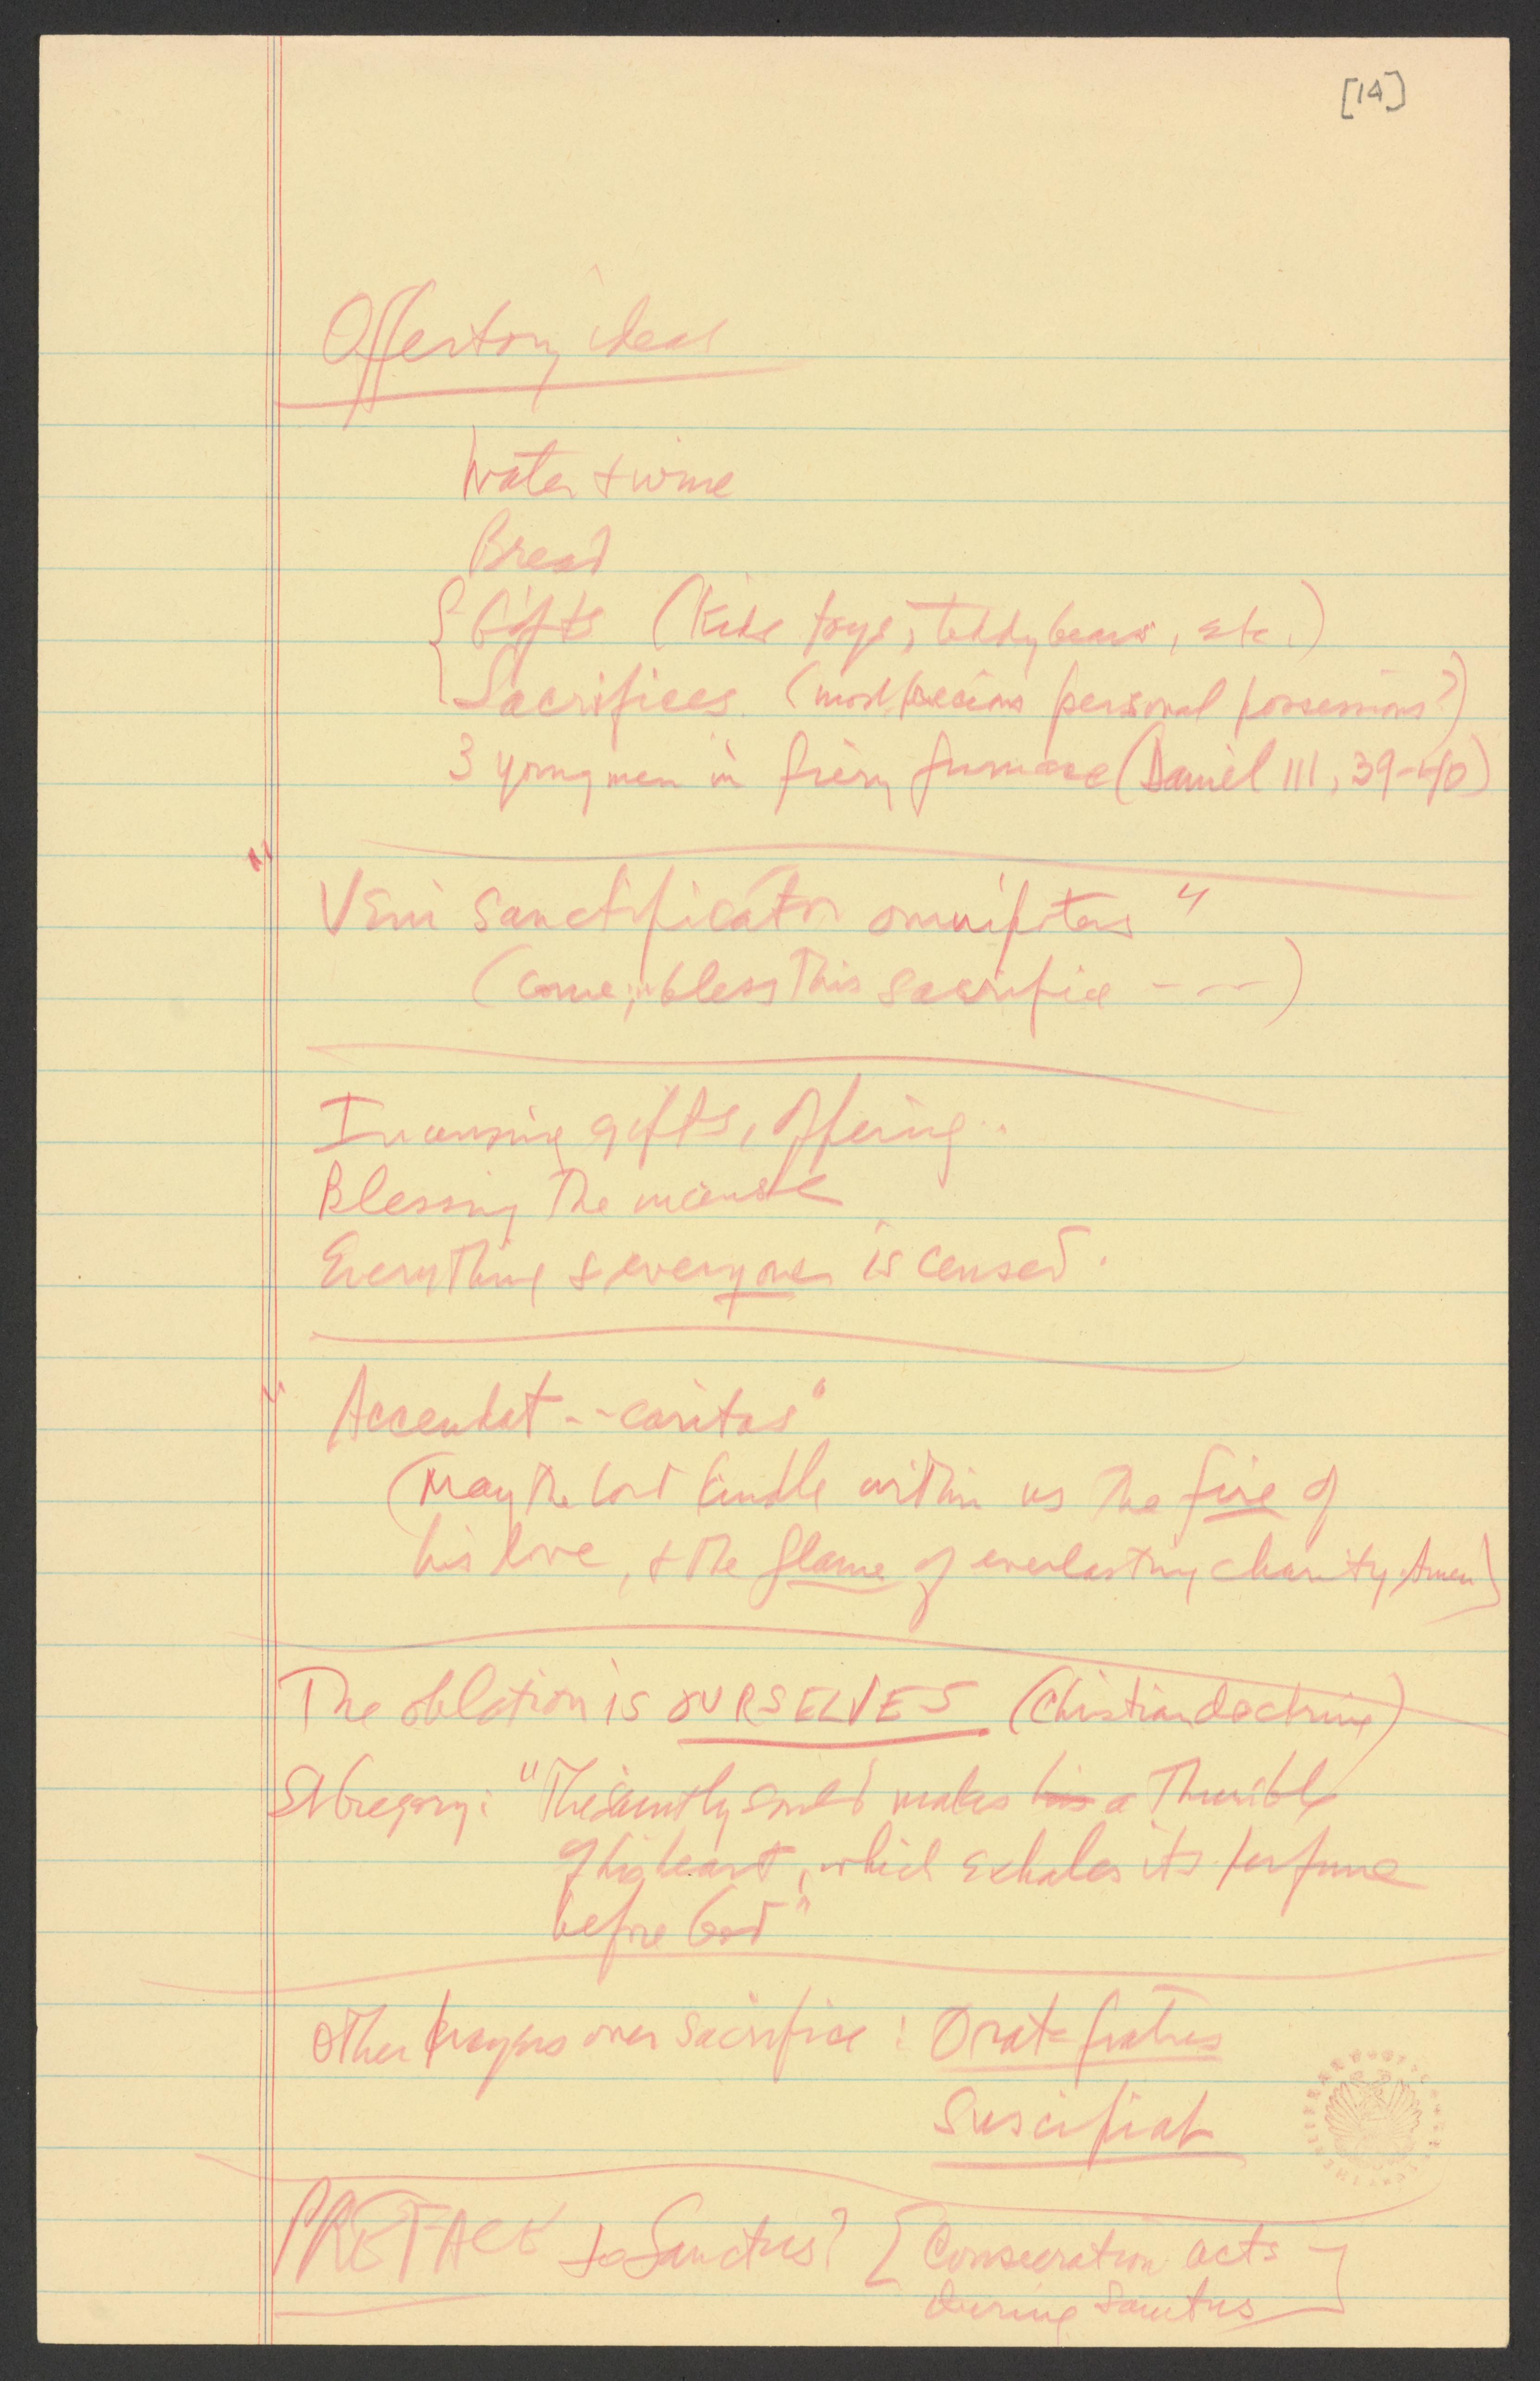 [14]
Offertory ideas
Water + wine
Bread
Gifts (Kids toys, teddybears, etc.)
Sacrifices (most precious personal possessions?)
3 young men in fiery furnace (Daniel III, 39-40)
"Veni Sanctificator omnipotens"
(Come, bless this sacrifice ----)
Incensing gifts, offering..
Blessing the incense
Everything & everyone is censed.
"Accendat -- caritas"
(May the Lord kindle within us the fire of
his love, + the flame of everlasting charity. Amen)
The oblation is OURSELVES (Christian doctrine)
St Gregory: "The saintly soul makes his a Thurible
of his heart, which exhales its perfume
before God"
Other prayers over sacrifice: Orate fratres
Suscipiat
PREFACE to Sanctus? [Consecration acts
during Sanctus]